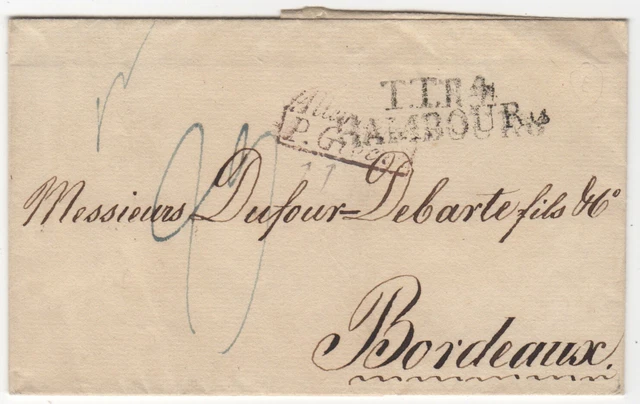 T.T.R.4
HAMBOURG
Allem
P. Givet
Messieurs Dufour-Debarte fils & Co
Bordeaux.